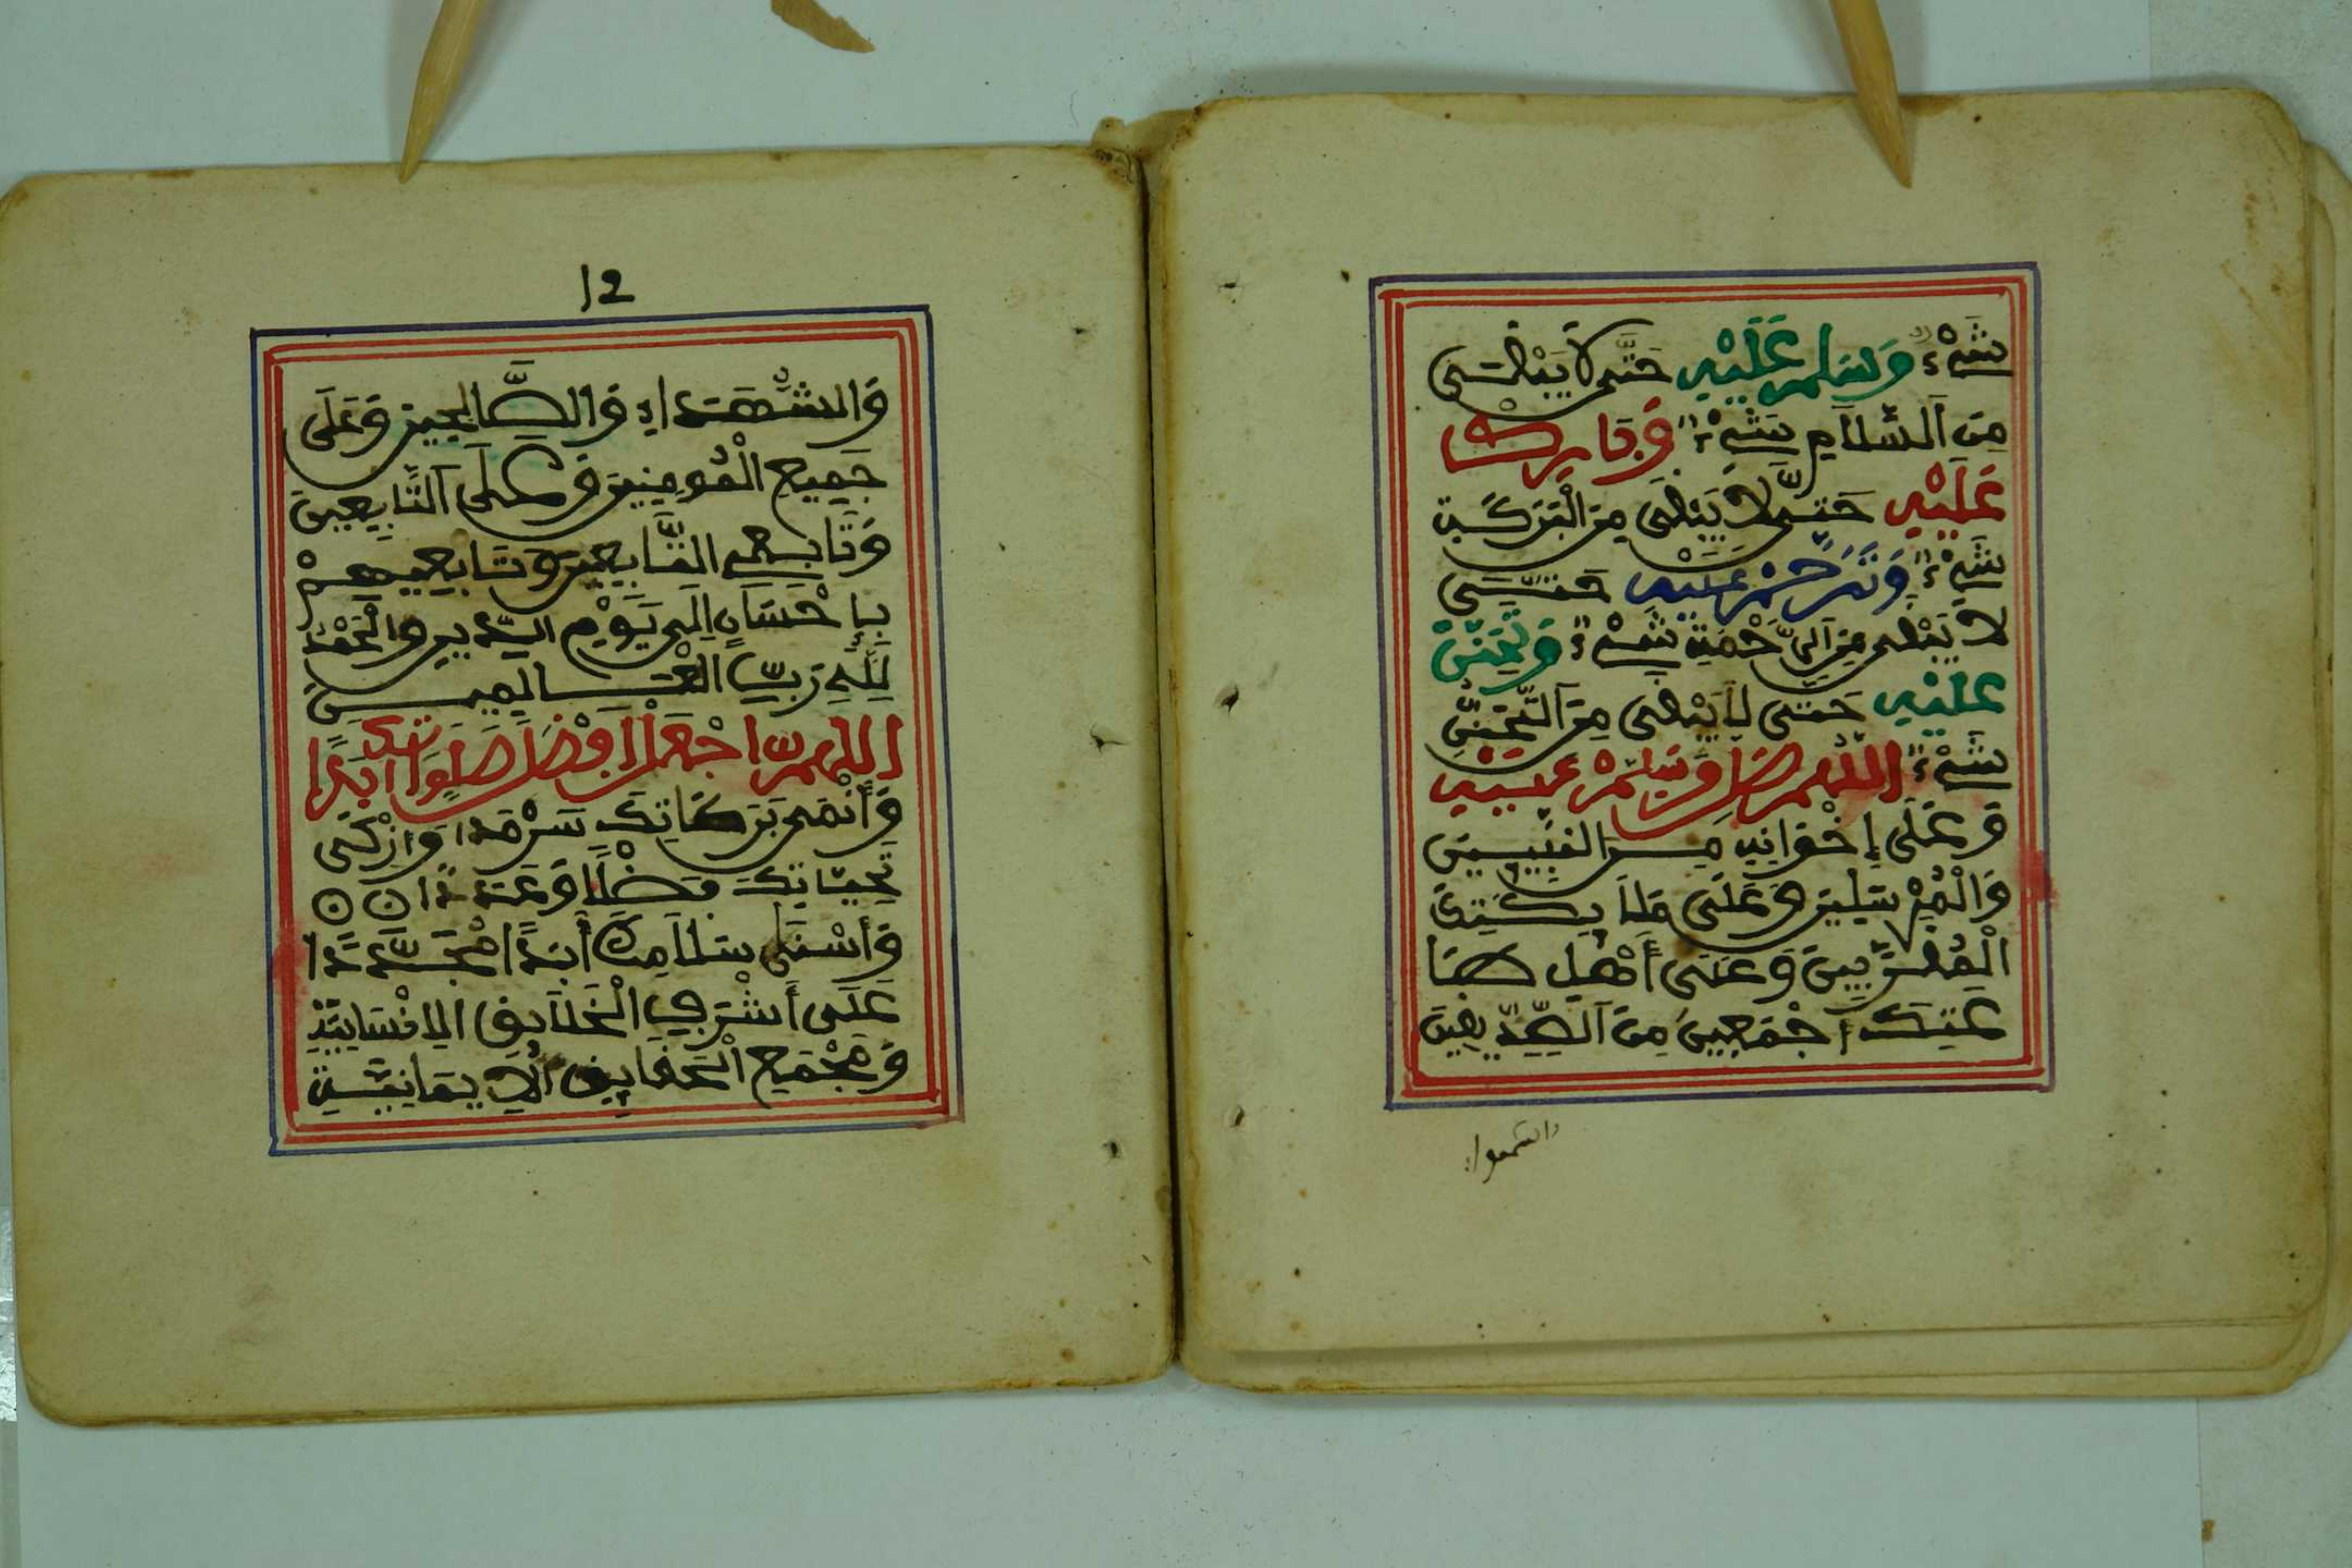 شَيْءٌ وَسَلِّمْ عَلَيْهِ حَتَّى لَا يَبْقَى
مِنَ السَّلَامِ شَيْءٌ وَبَارِكْ
عَلَيْهِ حَتَّى لَا يَبْقَى مِنَ الْبَرَكَةِ
شَيْءٌ وَتَرَحَّمْ عَلَيْهِ حَتَّى
لَا يَبْقَى مِنَ الرَّحْمَةِ شَيْءٌ وَتَحَنَّنْ
عَلَيْهِ حَتَّى لَا يَبْقَى مِنَ التَّحَنُّنِ
شَيْءٌ اللَّهُمَّ صَلِّ وَسَلِّمْ عَلَيْهِ
وَعَلَى إِخْوَانِهِ مِنَ النَّبِيِّينَ
وَالْمُرْسَلِينَ وَعَلَى مَلَائِكَتِكَ
الْمُقَرَّبِينَ وَعَلَى أَهْلِ طَا
عَتِكَ أَجْمَعِينَ مِنَ الصِّدِّيقِينَ
12
وَالشُّهَدَاءِ وَالصَّالِحِينَ وَعَلَى
جَمِيعِ الْمُومِنِينَ وَعَلَى التَّابِعِينَ
وَتَابِعِي التَّابِعِينَ وَتَابِعِيهِمْ
بِإِحْسَانٍ إِلَى يَوْمِ الدِّينِ وَالْحَمْدُ
لِلَّهِ رَبِّ الْعَالَمِينَ
اللَّهُمَّ اجْعَلْ أَفْضَلَ صَلَوَاتِكَ أَبَدًا
وَأَنْمَى بَرَكَاتِكَ سَرْمَدًا وَأَزْكَى
تَحِيَّاتِكَ فَضْلًا وَعَدَدًا
وَأَسْنَى سَلَامِكَ أَبَدًا مُجَدَّدًا
عَلَى أَشْرَفِ الْخَلَائِقِ الْإِنْسَانِيَّةِ
وَمَجْمَعِ الْحَقَائِقِ الْإِيمَانِيَّةِ